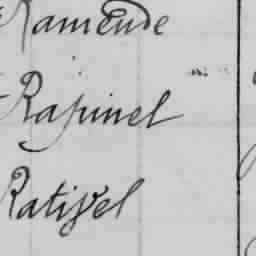 Ramende
Rapinel
Rativel